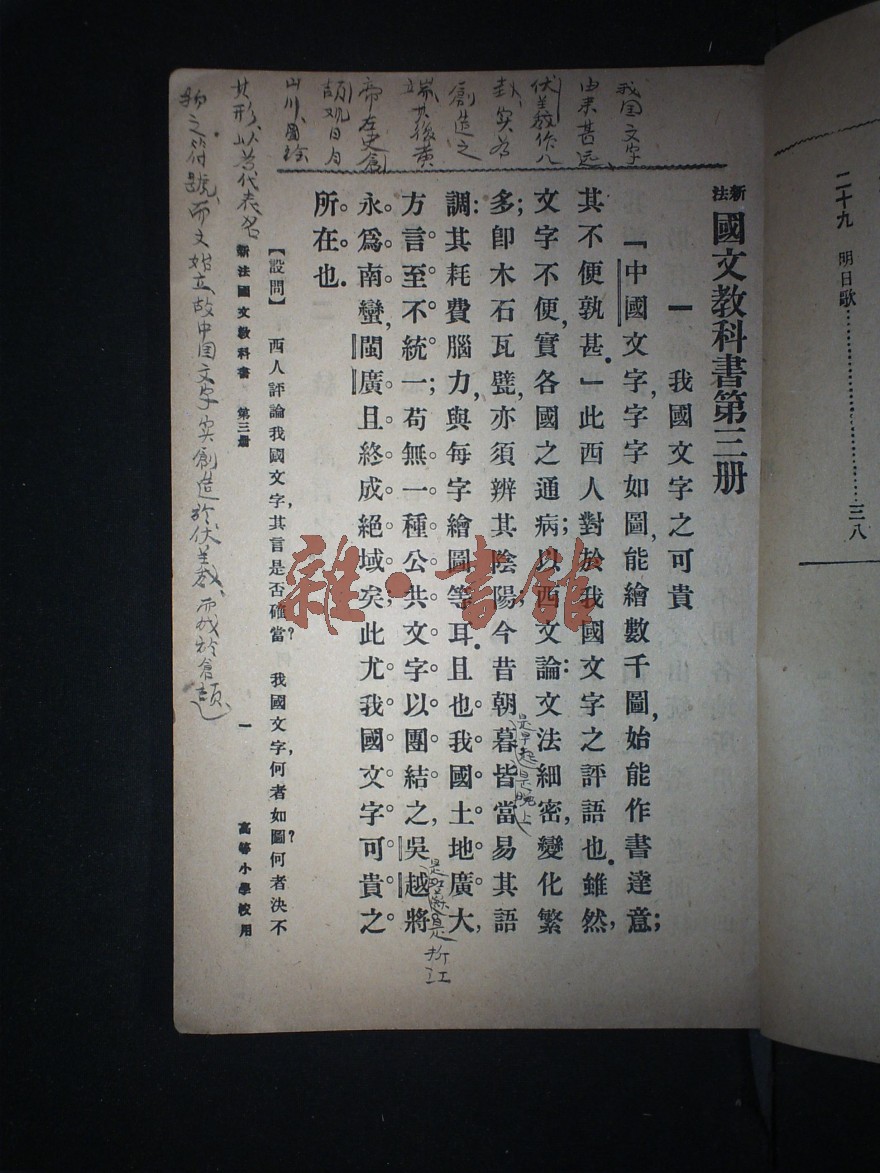 二十九　明日歌……………………三八
新法國文教科書第三册
一　我國文字之可貴
「中國文字，字字如圖，能繪數千圖，始能作書達意；
其不便孰甚。」此西人對於我國文字之評語也。雖然，
文字不便，實各國之通病；以西文論：文法細密，變化繁
多；卽木石瓦甓，亦須辨其陰陽，今昔朝暮皆當易其語
調：其耗費腦力，與每字繪圖等耳。且也我國土地廣大，
方言至不統一；苟無一種公共文字以團結之，吳越將
永爲南蠻，閩廣且終成絕域矣；此尤我國文字可貴之
所在也。
【設問】　西人評論我國文字，其言是否確當？　我國文字，何者如圖？何者決不
新法國文教科書　第三册　一　高等小學校用
我国文字
由来甚远
伏羲作八
卦、实为
創造之
端、其後黄
帝左史倉
頡观日月
山川、圖绘
其形、以为代表名
物之符號、而文始立、故中国文字实創造於伏羲、而成於倉頡
是早起是晚上
浙江
雜·書館